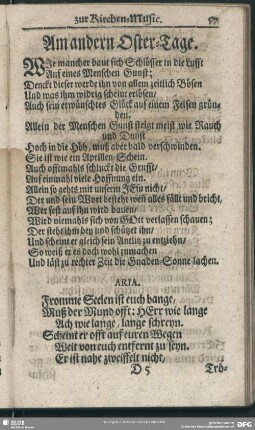 zur Kirchen-Music. 57
Am andern Oster-Tage.
Wie mancher baut sich Schlösser in die Lufft
Auf eines Menschen Gunst;
Denckt dieser werde ihn von allem zeitlich Bösen
Und was ihm widrig scheint erlösen/
Auch sein erwünschtes Glück auf einem Felsen grün-
den.
Allein der Menschen Gunst steigt meist wie Rauch
und Dunst
Hoch in die Höh, muß aber bald verschwinden.
Sie ist wie ein Aprillen-Schein.
Auch offtmahls schluckt die Grufft/
Auf einmahl viele Hoffnung ein.
Allein so gehts mit unserm JEsu nicht/
Der und sein Wort besteht wen alles fällt und bricht,
Wer fest auf ihn wird bauen/
Wird niemahls sich von GOtt verlassen schauen;
Der steht ihm bey und schützet ihn/
Und scheint er gleich sein Antlitz zu entziehn/
So weiß er es doch wohl zu machen
Und läst zu rechter Zeit die Gnaden-Sonne lachen.
ARIA.
Fromme Seelen ist euch bange,
Muß der Mund offt: HErr wie lange
Ach wie lange, lange schreyn.
Scheint er offt auf euren Wegen
Weit von euch entfernt zu seyn.
Er ist nahe zweiffelt nicht,
D 5 Trö-
SLUB
DFG